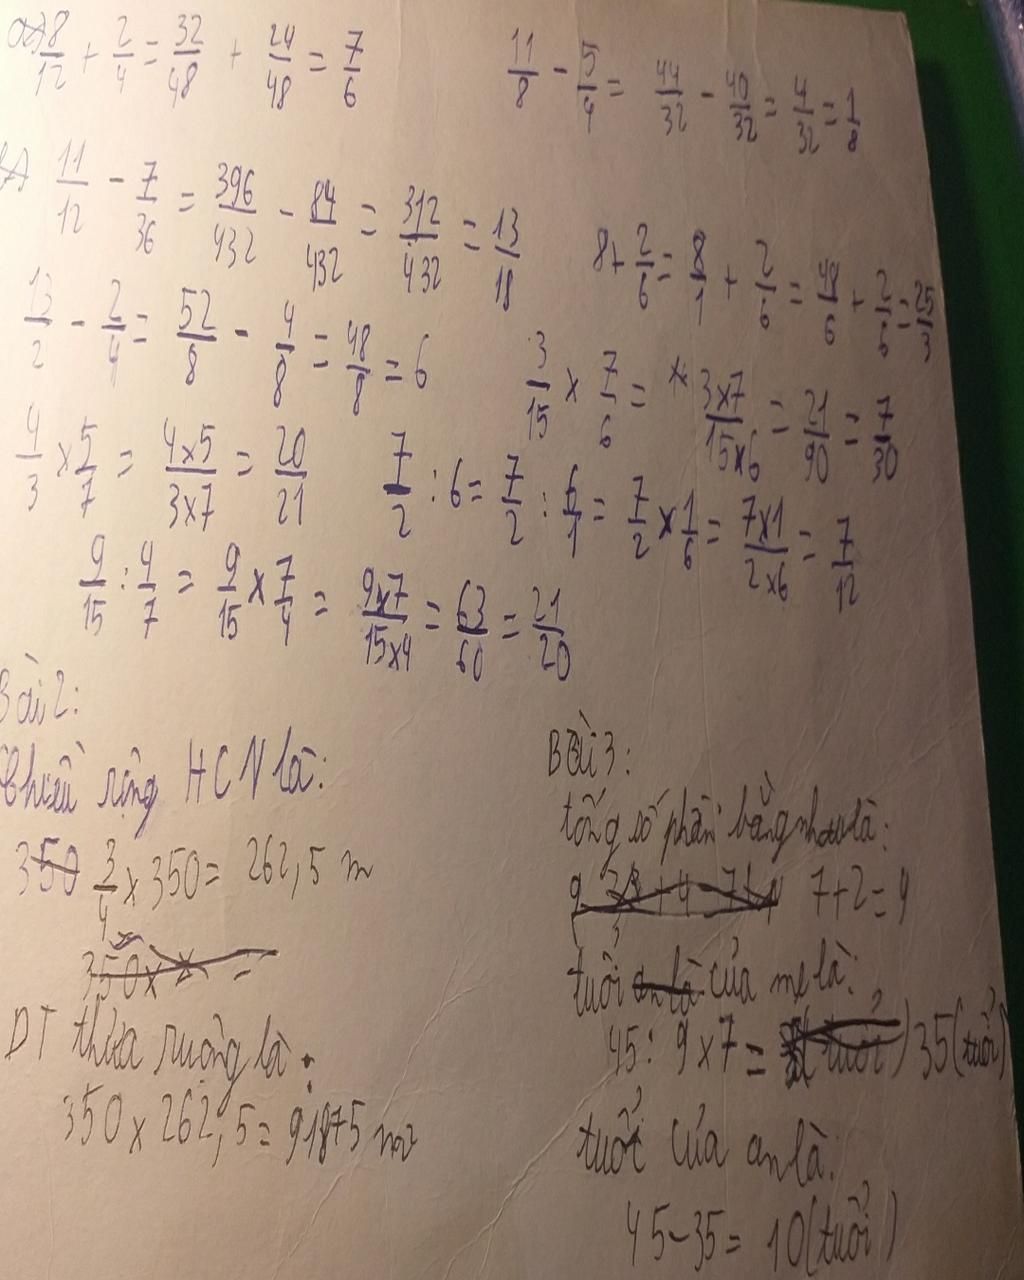 a) 8/12 + 2/4 = 32/48 + 24/48 = 7/6
11/8 - 5/4 = 44/32 - 40/32 = 4/32 = 1/8
11/12 - 7/36 = 396/432 - 84/432 = 312/432 = 13/18
8 + 2/6 = 8/1 + 2/6 = 48/6 + 2/6 = 25/3
13/2 - 2/4 = 52/8 - 4/8 = 48/8 = 6
3/15 x 7/6 = 3x7/15x6 = 21/90 = 7/30
4/3 x 5/7 = 4x5/3x7 = 20/21
7/2 : 6 = 7/2 : 6/1 = 7/2 x 1/6 = 7x1/2x6 = 7/12
9/15 : 4/7 = 9/15 x 7/4 = 9x7/15x4 = 63/60 = 21/20
Bài 2:
Chiều rộng HCN là:
350 3/4 x 350 = 262,5 m
350 x
DT thửa ruộng là:
350 x 262,5 = 91875 m2
Bài 3:
tổng số phần bằng nhau là:
7+2=9
tuổi an là của mẹ là:
45 : 9 x 7 = 35 (tuổi)
tuổi của an là:
45-35 = 10 (tuổi)